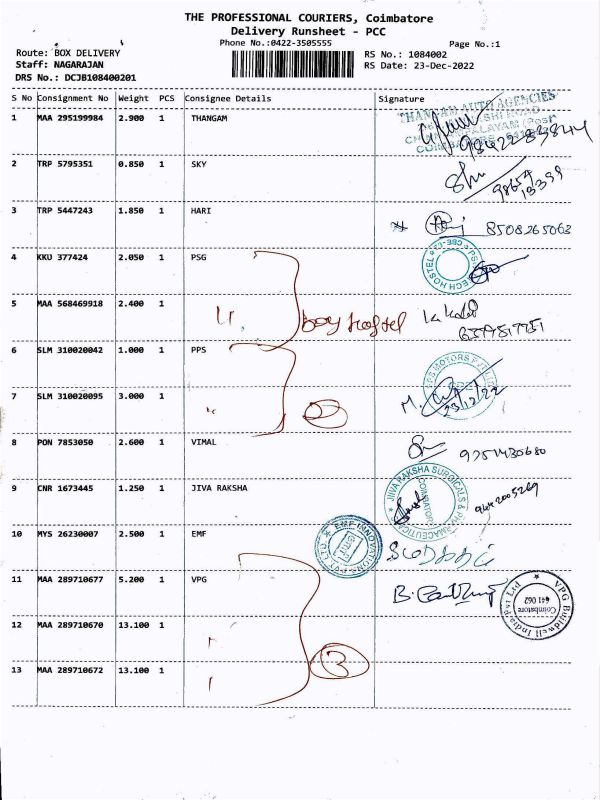 THE PROFESSIONAL COURIERS, Coimbatore
Delivery Runsheet - PCC
Phone No.:0422-3505555
Page No.:1
Route: BOX DELIVERY
RS No.: 1084002
Staff: NAGARAJAN
RS Date: 23-Dec-2022
DRS No.: DCJB108400201
S No Consignment No Weight PCS Consignee Details Signature
1 MAA 295199984 2.900 1 THANGAM
THANGAM AUTO AGENCIES
2 TRP 5795351 0.850 1 SKY
3 TRP 5447243 1.850 1 HARI
8508265063
4 KKU 377424 2.050 1 PSG
5 MAA 568469918 2.400 1
boy hostel
6 SLM 310020042 1.000 1 PPS
7 SLM 310020095 3.000 1
2
23/12/22
8 PON 7853050 2.600 1 VIMAL
9 CNR 1673445 1.250 1 JIVA RAKSHA
JIVA RAKSHA SURGICALS & PHARMACEUTICALS
COIMBATORE
10 MYS 26230007 2.500 1 EMF
EMF INNOVATIONS PVT LTD
11 MAA 289710677 5.200 1 VPG
VPG Buildwell India Pvt Ltd
Coimbatore
641 062
12 MAA 289710670 13.100 1
3
13 MAA 289710672 13.100 1